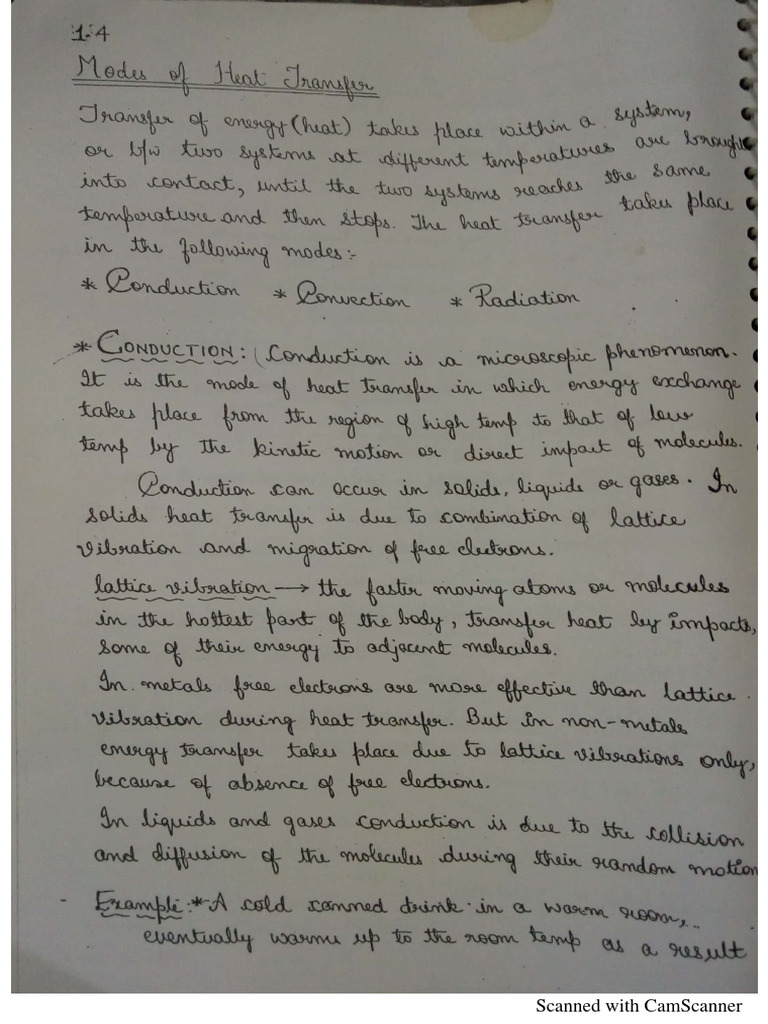 1.4
Modes of Heat Transfer
Transfer of energy (heat) takes place within a system,
or b/w two systems at different temperatures are brought
into contact, until the two systems reaches the same
temperature and then stops. The heat transfer takes place
in the following modes:-
* Conduction * Convection * Radiation
* CONDUCTION: Conduction is a microscopic phenomenon.
It is the mode of heat transfer in which energy exchange
takes place from the region of high temp to that of low
temp by the kinetic motion or direct impact of molecules.
Conduction can occur in solids, liquids or gases. In
solids heat transfer is due to combination of lattice
vibration and migration of free electrons.
lattice vibration → the faster moving atoms or molecules
in the hottest part of the body, transfer heat by impacts,
some of their energy to adjacent molecules.
In metals free electrons are more effective than lattice
vibration during heat transfer. But in non-metals
energy transfer takes place due to lattice vibrations only,
because of absence of free electrons.
In liquids and gases conduction is due to the collision
and diffusion of the molecules during their random motion
Example:* A cold canned drink in a warm room,
eventually warms up to the room temp as a result
Scanned with CamScanner